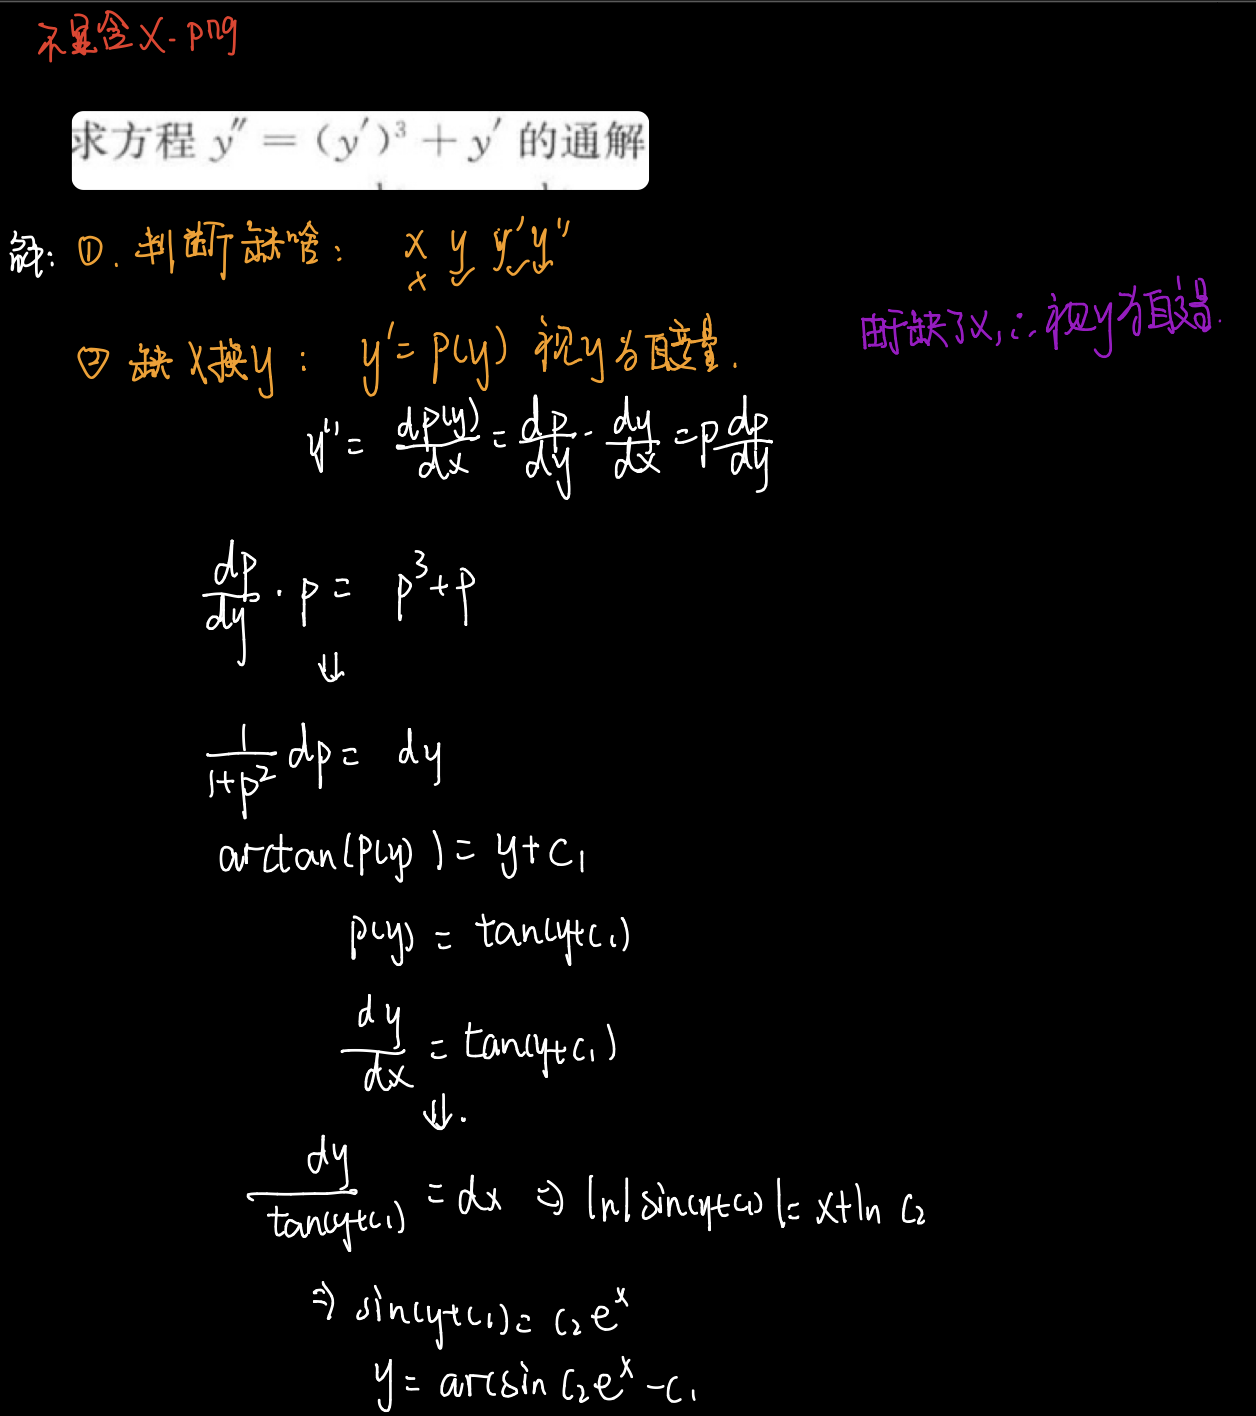 不显含 x - png
求方程 y″ = (y′)³ + y′ 的通解
解: ①. 判断缺啥: x y y′ y″
× ✓ ✓ ✓
由于缺了x, ∴ 视y为自变量.
② 缺x换y: y′ = p(y) 视y为自变量.
y″ = dp(y)/dx = dp/dy · dy/dx = p dp/dy
dp/dy · p = p³+p
⇓
1/(1+p²) dp = dy
arctan(p(y)) = y+C₁
p(y) = tan(y+C₁)
dy/dx = tan(y+C₁)
⇓.
dy/tan(y+C₁) = dx ⇒ ln|sin(y+C₁)| = x+ln C₂
⇒ sin(y+C₁) = C₂eˣ
y = arcsin C₂eˣ - C₁